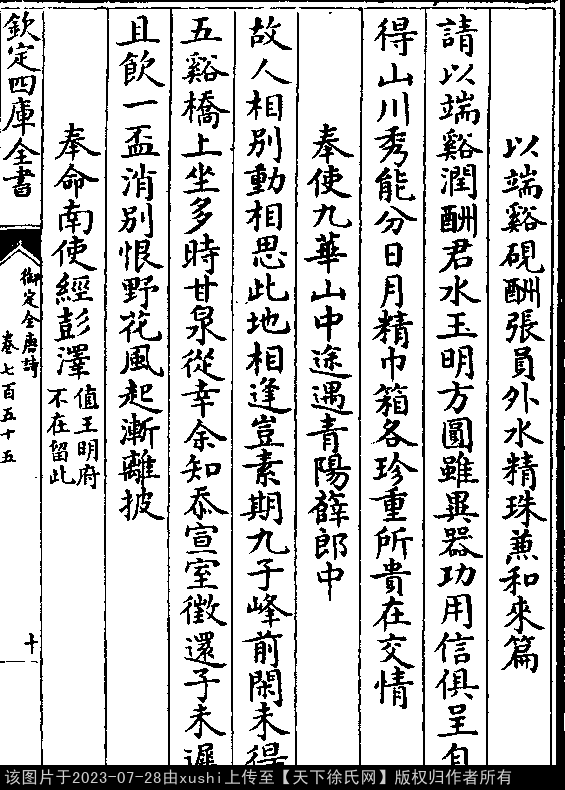 以端谿硯酬張員外水精珠兼和來篇
請以端谿潤酬君水玉明方圓雖異器功用信俱呈自
得山川秀能分日月精巾箱各珍重所貴在交情
奉使九華山中途遇青陽薛郎中
故人相別動相思此地相逢豈素期九子峰前閑未得
五谿橋上坐多時甘泉從幸余知忝宣室徵還子未遲
且飲一盃消別恨野花風起漸離披
奉命南使經彭澤值王明府不在留此
欽定四庫全書
御定全唐詩
卷七百五十五
十
该图片于2023-07-28由xushi上传至【天下徐氏网】版权归作者所有